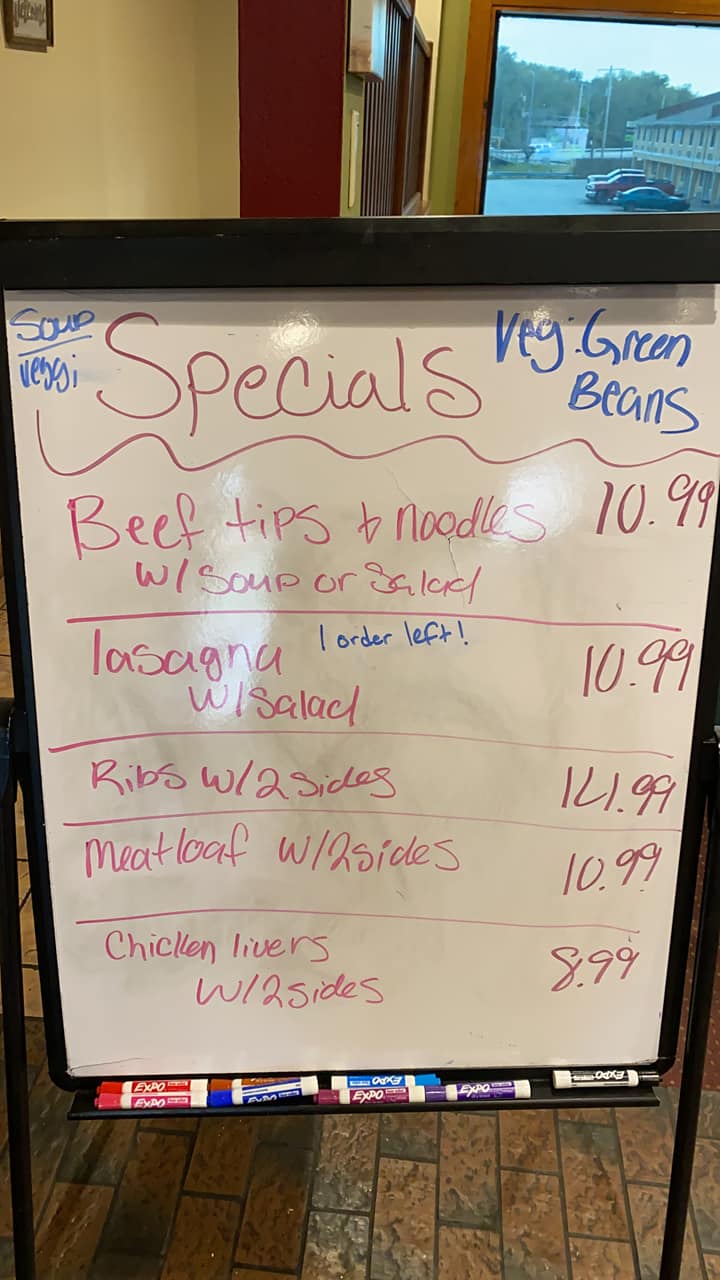 Soup
veggi
Specials
Veg: Green
Beans
Beef tips & noodles 10.99
W/ Soup or Salad
lasagna 1 order left! 10.99
W/Salad
Ribs W/2 sides 14.99
Meatloaf W/2 sides 10.99
Chicken livers 8.99
W/2 sides
EXPO
EXPO
EXPO
EXPO
EXPO
EXPO
EXPO